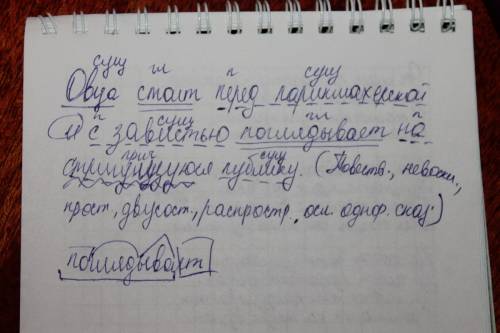 сущ гл п сущ
Овца стоит перед парикмахерской
п сущ гл п
и с завистью поглядывает на
прич сущ
стригущуюся публику. (Повеств., невоскл.,
прост., двусост., распростр., осл. однор. сказ.)
поглядывает